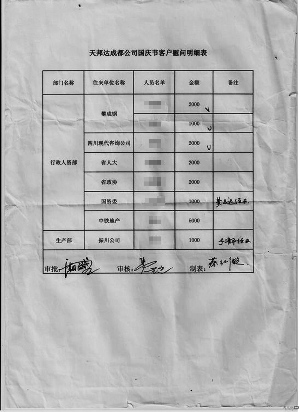 天邦达成都公司国庆节客户慰问明细表
部门名称 往来单位名称 人员名单 金额 备注
行政人资部 2000
1000
四川现代咨询公司 2000
省人大 2000
省政协 2000
国资委 1000
中铁地产 5000
生产部 振川公司 1000
审批: 审核: 制表: